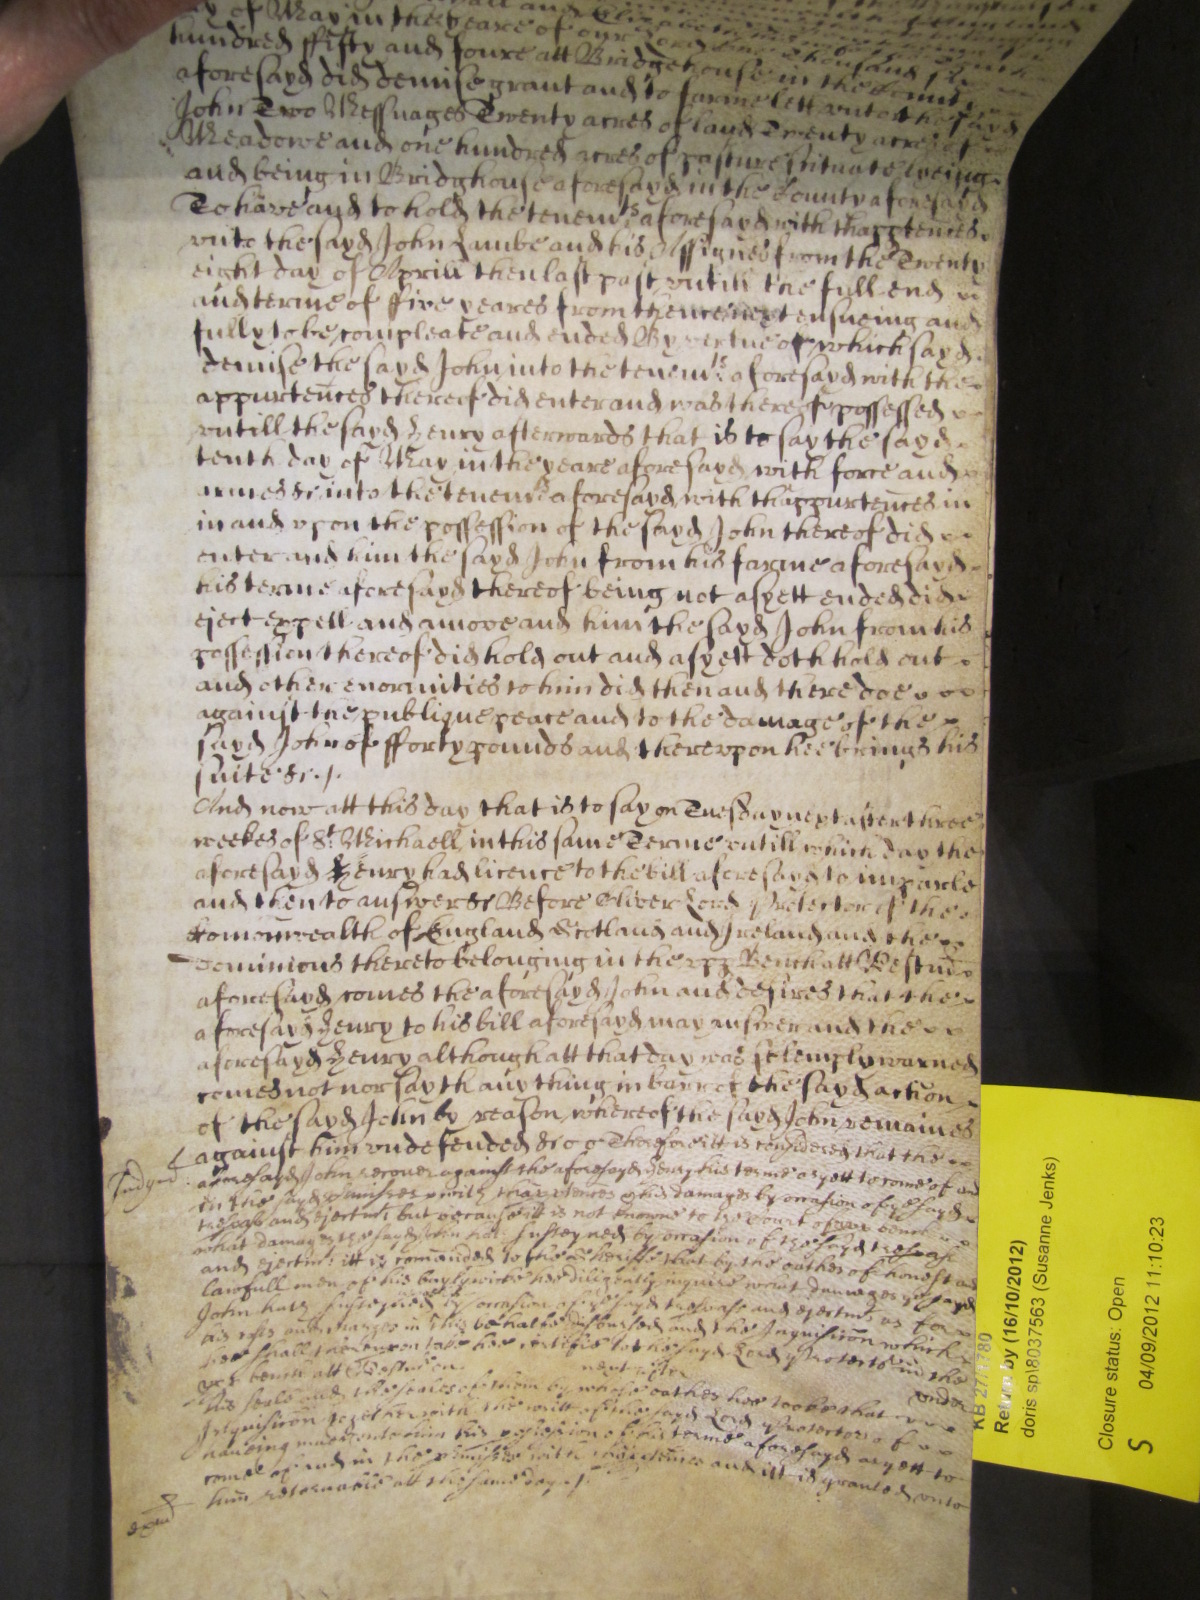 day of May in the yeare of our Lord one thousand six
hundred ffifty and foure att Bridgehouse in the County
aforesayd did demise grant and to farme lett unto the sayd
John Two Messuages Twenty acres of land Twenty acres of
Meadowe and one hundred acres of pasture scituate lyeing
and being in Bridghouse aforesayd in the County aforesayd
To have and to hold the tenemts aforesayd with thapptences
unto the sayd John Lambe and his Assignes from the Twenty
eight day of Aprill then last past untill the full end
and terme of ffive yeares from thence next ensueing and
fully to be compleate and ended By vertue of which sayd
demise the sayd John into the tenemts aforesayd with the
appurtences thereof did enter and was thereof possessed
untill the sayd Henry afterwards that is to say the sayd
tenth day of May in the yeare aforesayd with force and
armes &c into the tenemts aforesayd with thappurtences in
in and upon the possession of the sayd John thereof did
enter and him the sayd John from his farme aforesayd
his terme aforesayd thereof being not as yett ended did
eject expell and amove and him the sayd John from his
possession thereof did hold out and as yett doth hold out
and other enormities to him did then and there doe
against the publique peace and to the damage of the
sayd John of fforty pounds and thereupon hee brings his
suite &c.
And now att this day that is to say on Tuesday next after three
weekes of St. Michaell in this same Terme untill which day the
aforesayd Henry had licence to the bill aforesayd to imparle
and then to answer &c Before Oliver Lord Protector of the
Comonwealth of England Scotland and Ireland and the
Dominions thereto belonging in the upp Bench att Westmr
aforesayd comes the aforesayd John and desires that the
aforesayd Henry to his bill aforesayd may answer and the
aforesayd Henry although att that day was solemply warned
comes not nor sayth any thing in barr of the sayd action
of the sayd John by reason whereof the sayd John remaines
against him undefended &c Therefore itt is considered that the
Judgmt
aforesayd John recover against the aforesayd Henry his terme as yett to come of and
in the sayd premisses with thapptences & his damages by occasion of the sayd
trespass and ejectmt but because itt is not knowne to the Court of upp bench
what damages the sayd John hath susteyned by occasion of the sayd trespass
and ejectmt itt is comanded to the Sheriffe that by the oathes of honest and
lawfull men of his baylywicke hee diligently inquire what damages the sayd
John hath susteyned by occasion of the sayd trespass and ejectmt as for
his costs and charges in this behalfe disbursed and the Inquisicon which
hee shall thereupon take hee certifie to the sayd Lord Protector in the
upp bench att Westmr next after under
his seale and the seales of them by whose oathes hee tooke that
Inquisicon together with the writt of the sayd Lord Protector of
haveing unto him his possession of his terme aforesayd as yett to
come of and in the premisses with thapptences and itt is granted unto
him returnable att the same day &c
KB 27/1780
Return by (16/10/2012)
doris sp\8037563 (Susanne Jenks)
Closure status: Open
S 04/09/2012 11:10:23